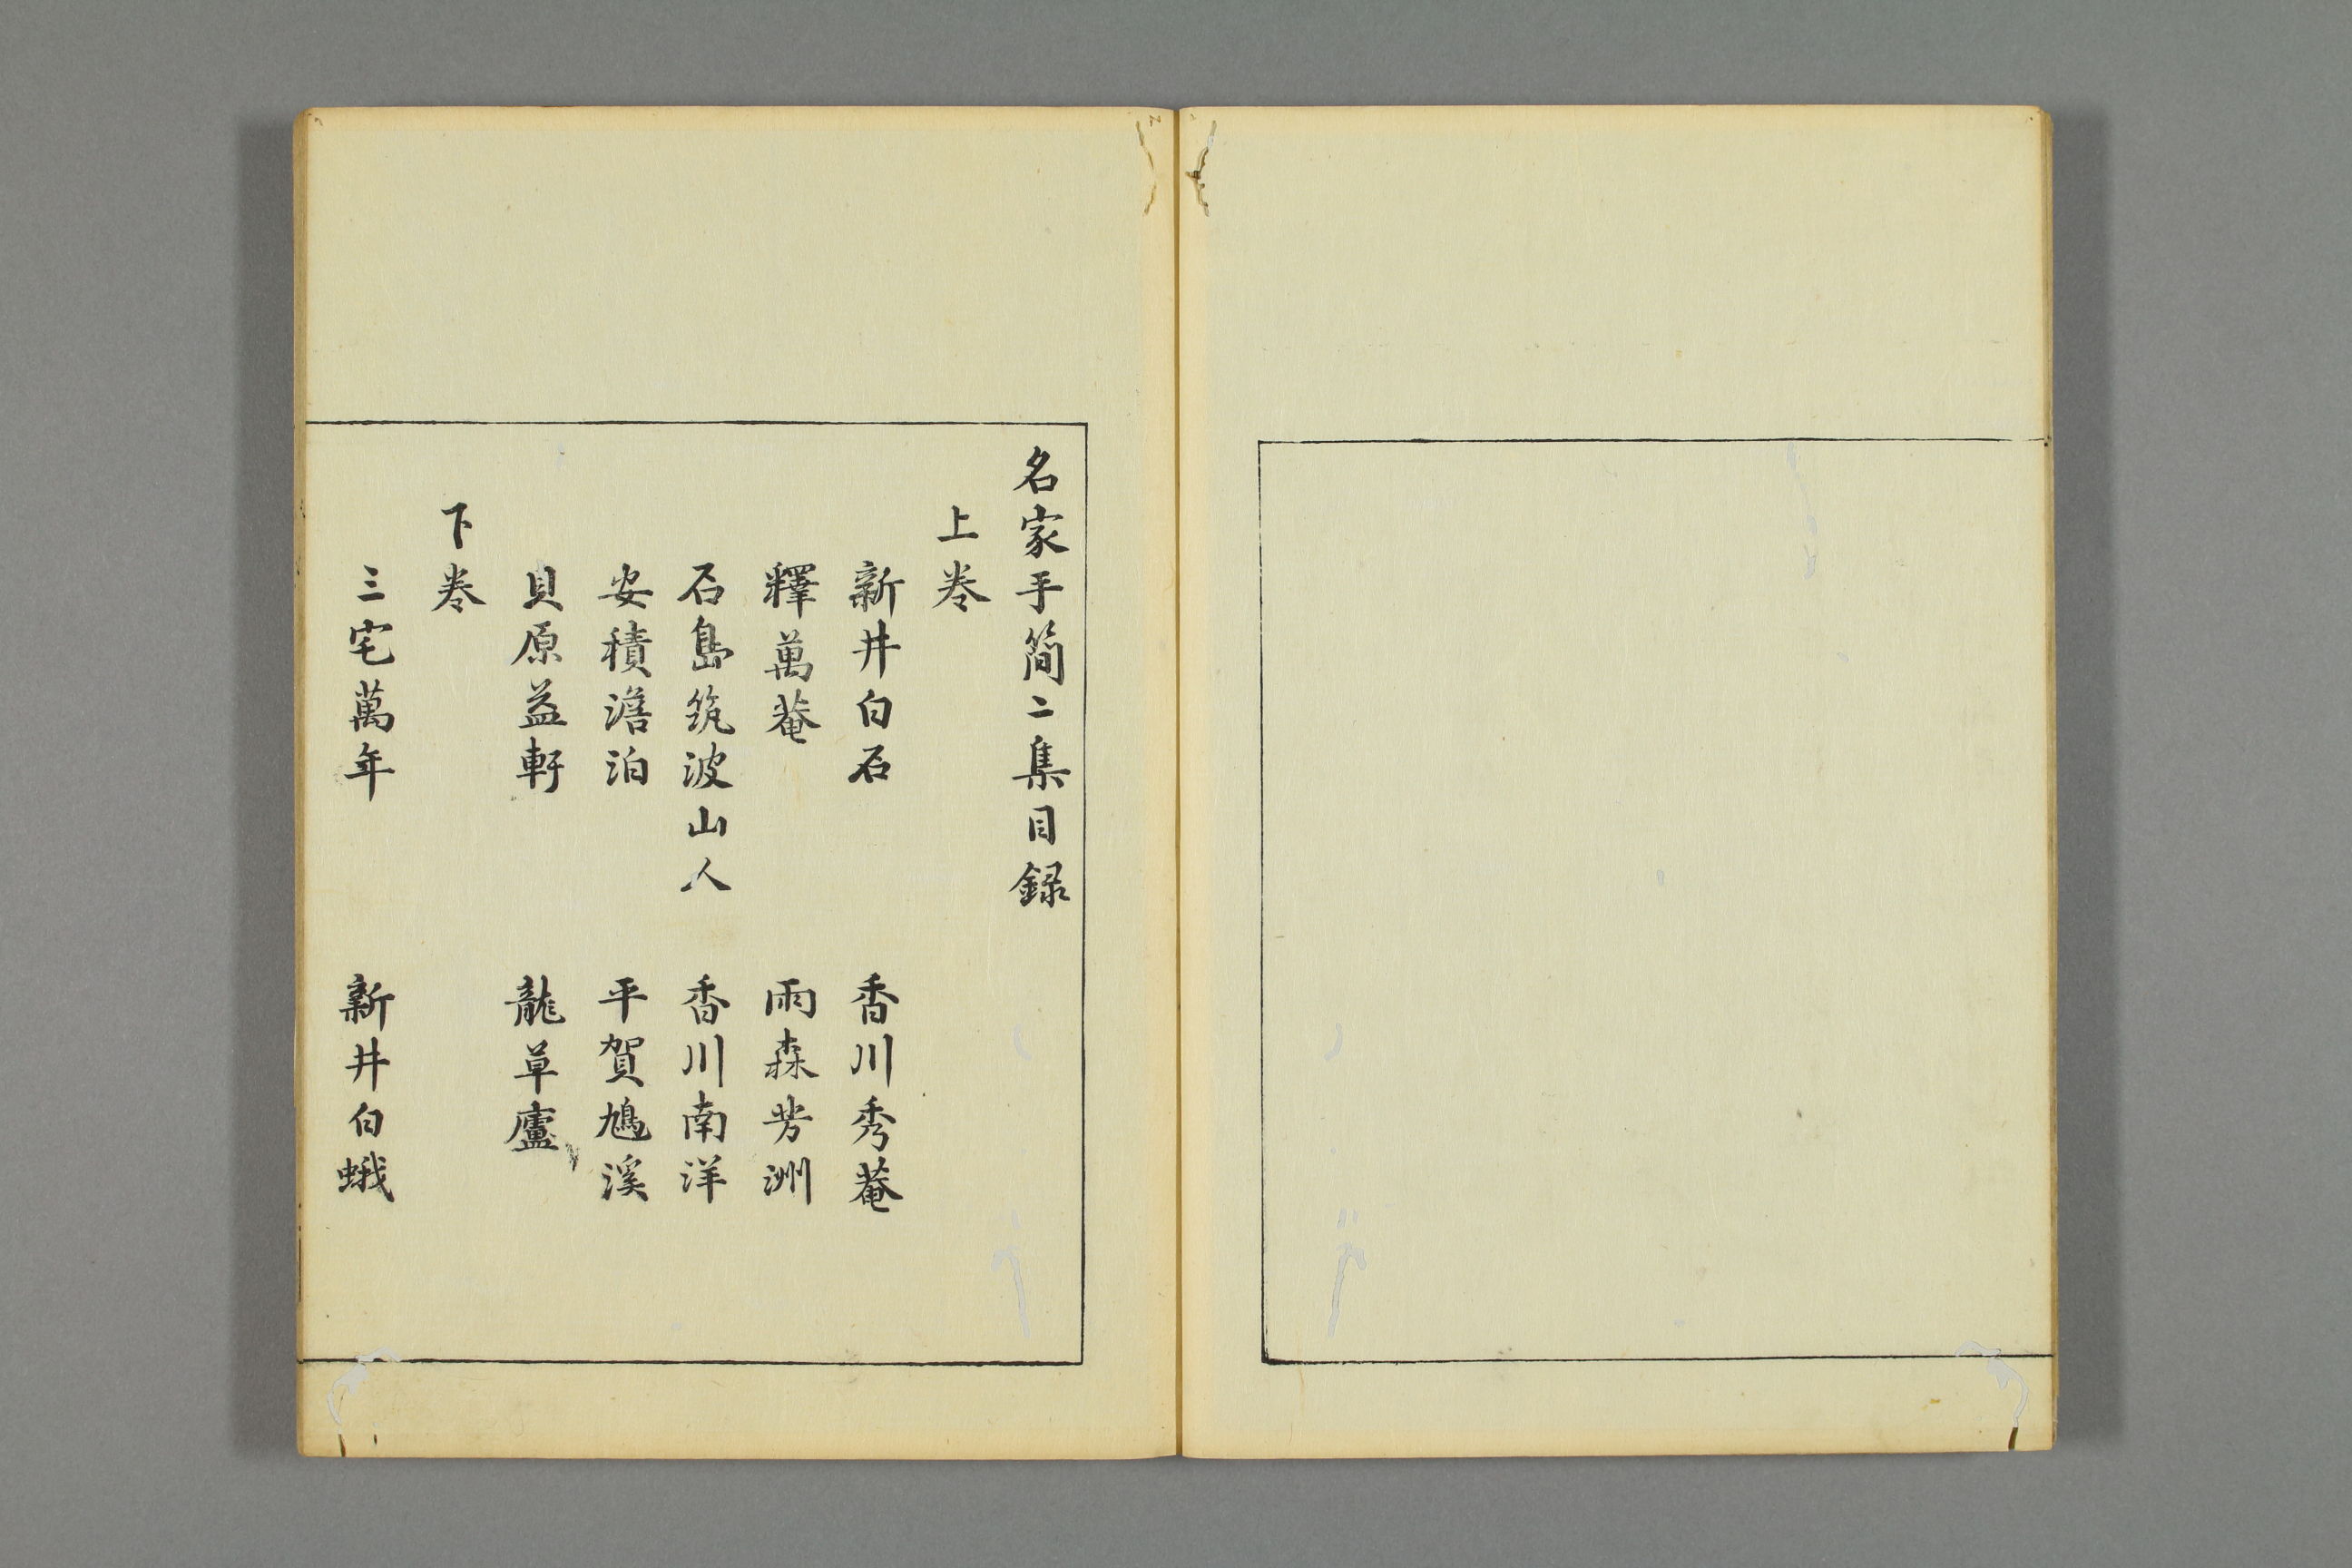 名家手簡二集目録
上巻
新井白石 香川秀菴
釋萬菴 雨森芳洲
石島筑波山人 香川南洋
安積澹泊 平賀鳩溪
貝原益軒 龍草廬
下巻
三宅萬年 新井白蛾